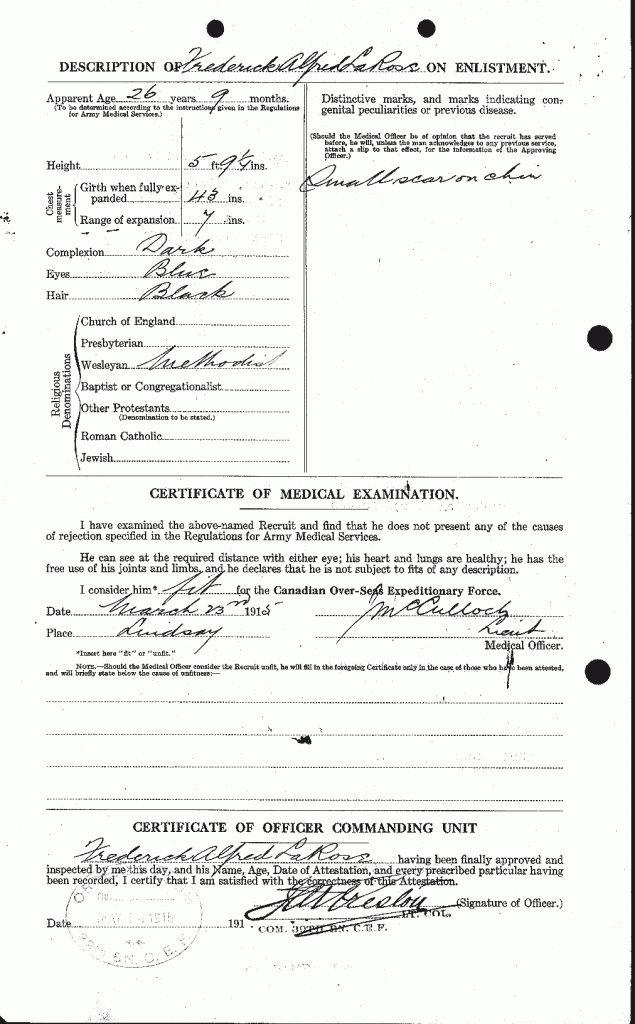 DESCRIPTION OF Frederick Alfred LaRose ON ENLISTMENT.
Apparent Age 26 years 9 months.
(To be determined according to the instructions given in the Regulations
for Army Medical Services.)
Height 5 ft. 9 1/4 ins.
Chest measurement
Girth when fully expanded 43 ins.
Range of expansion 7 ins.
Complexion Dark
Eyes Blue
Hair Black
Religious Denominations
Church of England
Presbyterian
Wesleyan Methodist
Baptist or Congregationalist
Other Protestants
(Denomination to be stated.)
Roman Catholic
Jewish
Distinctive marks, and marks indicating con-
genital peculiarities or previous disease.
(Should the Medical Officer be of opinion that the recruit has served
before, he will, unless the man acknowledges to any previous service,
attach a slip to that effect, for the information of the Approving
Officer.)
Small scar on chin
CERTIFICATE OF MEDICAL EXAMINATION.
I have examined the above-named Recruit and find that he does not present any of the causes
of rejection specified in the Regulations for Army Medical Services.
He can see at the required distance with either eye; his heart and lungs are healthy; he has the
free use of his joints and limbs, and he declares that he is not subject to fits of any description.
I consider him* fit for the Canadian Over-Seas Expeditionary Force.
Date March 23rd 1915 McCulloch
Place Lindsay Lieut
Medical Officer.
*Insert here "fit" or "unfit."
NOTE.—Should the Medical Officer consider the Recruit unfit, he will fill in the foregoing Certificate only in the case of those who have been attested,
and will briefly state below the cause of unfitness:—
CERTIFICATE OF OFFICER COMMANDING UNIT
Frederick Alfred LaRose having been finally approved and
inspected by me this day, and his Name, Age, Date of Attestation, and every prescribed particular having
been recorded, I certify that I am satisfied with the correctness of this Attestation.
(Signature of Officer.)
LT. COL.
Date 191
COM. 39TH BN. C.E.F.
1915
39th BN. C.E.F.